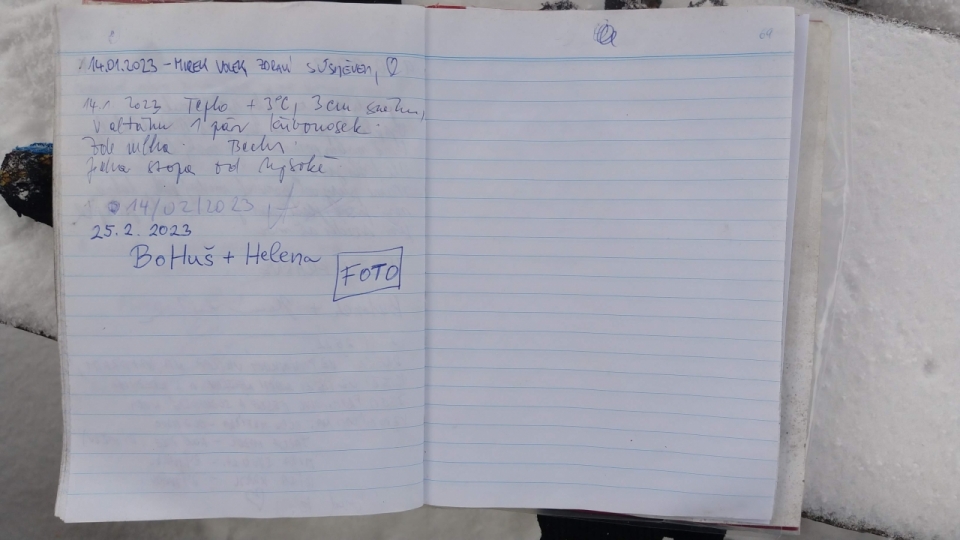 14.01.2023 - MIREK VOLEK ZDRAVÍ S ÚSMĚVEM, ♡
14.1 2023 Teplo +3°C, 3cm sněhu,
v altánu 1 pár
Zde mlha.
Jedna stopa od Vysoké
14/02/2023
25. 2. 2023
BoHuš + Helena
FOTO
69